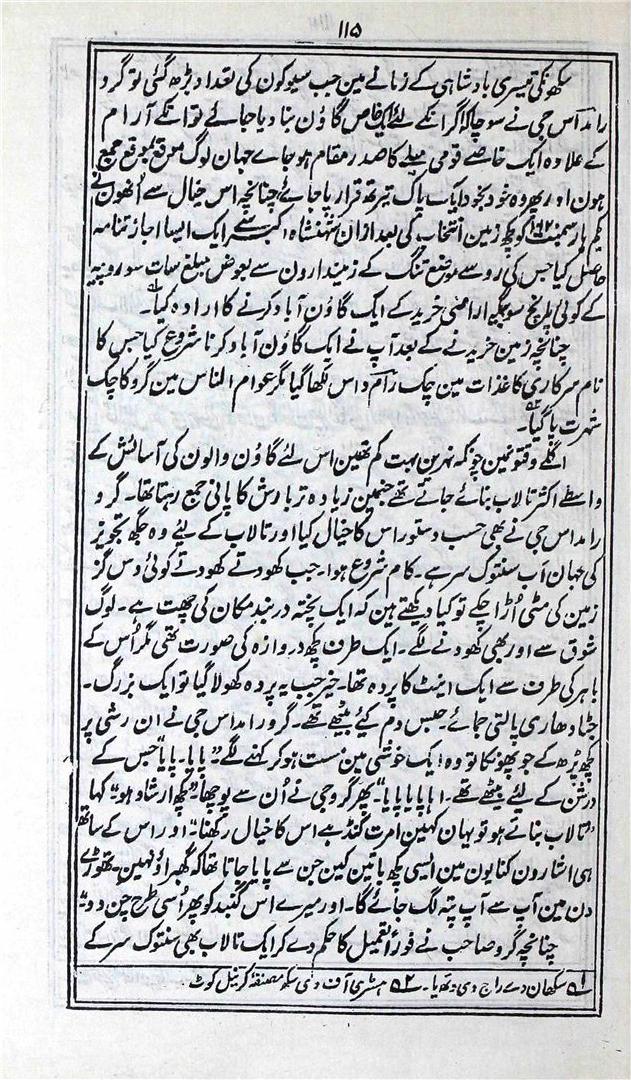 ۱۱۵
سکھونکی تیسری بادشاہی کے زمانے مین جب سیوکون کی تعداد بڑھ گئی تو گرو
رامداس جی نے سوچا کہ اگر انکے لئے ایک خاص گاؤن بنا دیا جائے تو انکے آرام
کے علاوہ ایک خاصے قومی میلے کا صدر مقام ہو جاے جہان لوگ موقع بموقع جمع
ہون اور پھر وہ خود بخود ایک پاک تیرتھ قرار پا جائے چنانچہ اس خیال سے اُنھون نے
یکم ہاڑ سمبت کو کچھ زمین انتخاب کی بعد ازان شہنشاہ اکبر سے ایک ایسا اجازتنامہ
حاصل کیا جس کی رو سے موضع تنگ کے زمیندارون سے بعوض مبلغ سات سو روپیہ
کے کوئی پانچ سو بیگہ اراضی خرید کے ایک گاؤن آباد کرنے کا ارادہ کیا۔
چنانچہ زمین خریدنے کے بعد آپ نے ایک گاؤن آباد کرنا شروع کیا جس کا
نام سرکاری کاغذات مین چک رام داس لکھا گیا مگر عوام الناس مین گرو کا چک
شہرت پا گیا۔
اگلے وقتونمین چونکہ نہرین بہت کم تھین اس لئے گاؤن والون کی آسائش کے
واسطے اکثر تالاب بنائے جاتے تھے جنمین زیادہ تر بارش کا پانی جمع رہتا تھا۔ گرو
رامداس جی نے بھی حسب دستور اس کا خیال کیا اور تالاب کے لیئے وہ جگھ تجویز
کی جہان اب سنتوک سر ہے۔ کام شروع ہوا۔ جب کھودتے کھودتے کوئی دس گز
زمین کی مٹی اُڑا چکے تو کیا دیکھتے ہین کہ ایک پختہ در بند مکان کی چھت ہے۔ لوگ
شوق سے اور بھی کھودنے لگے۔ ایک طرف کچھ دروازہ کی صورت تھی مگر اُس کے
باہر کی طرف سے ایک اینٹ کا پردہ تھا۔ خیر جب یہ پردہ کھولا گیا تو ایک بزرگ۔
جٹا دھاری پالتی جمائے۔ حبس دم کیئے بیٹھے تھے۔ گرو رامداس جی نے ان رشی پر
کچھ پڑھ کے جو پھونکا تو وہ ایک خوشی مین مست ہو کر کہنے لگے "پایا۔ پایا" جس کے
درشن کے لیئے بیٹھے تھے۔ اہاہا پاپاپا" پھر گرو جی نے اُن سے پوچھا۔ "کچھ ارشاد ہو" کہا
"تالاب بناتے ہو تو یہان کہین امرت کنڈ ہے اس کا خیال رکھنا۔" اور اس کے ساتھ
ہی اشارون کنایون مین ایسی کچھ باتین کین جن سے پایا جاتا تھا کہ گھبراؤ نہین۔ تھوڑے
دن مین آپ سے آپ پتہ لگ جائے گا۔ اور میرے اس گنبد کو پھر اُسی طرح چن دو"
چنانچہ گرو صاحب نے فوراً تعمیل کا حکم دے کر ایک تالاب بھی سنتوک سر کے
لہ سکھان دے راج دی وتھیا۔ ۲ہ ہسٹری آف دی سکھ مصنفہ کرنیل کوٹ